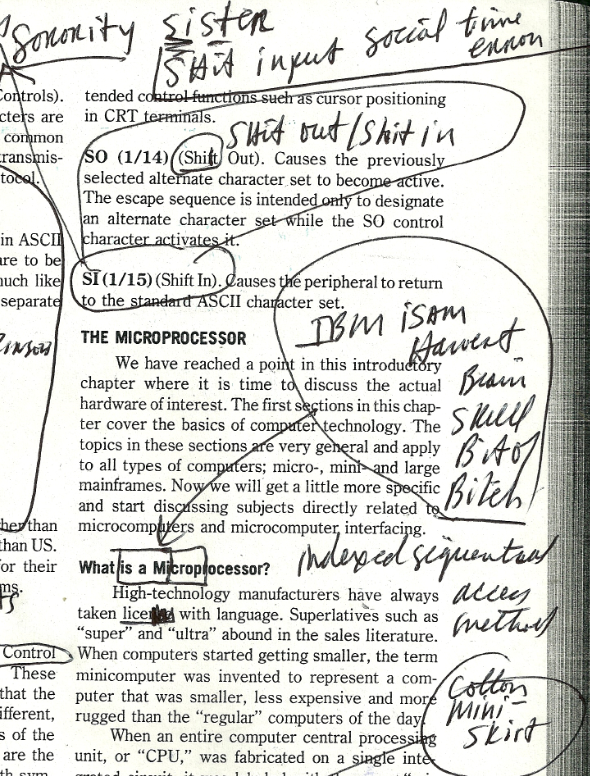 Sorority Sister
Shit input social time
error
Controls).
cters are
common
transmis-
tocol.
in ASCII
are to be
much like
separate
her than
than US.
or their
ms.
Control
These
that the
ifferent,
s of the
are the
tended control functions such as cursor positioning
in CRT terminals.
Shit out/Shit in
SO (1/14) (Shift Out). Causes the previously
selected alternate character set to become active.
The escape sequence is intended only to designate
an alternate character set while the SO control
character activates it.
SI (1/15) (Shift In). Causes the peripheral to return
to the standard ASCII character set.
IBM ISAM
Harvest
Brain
Skull
Bitch
THE MICROPROCESSOR
We have reached a point in this introductory
chapter where it is time to discuss the actual
hardware of interest. The first sections in this chap-
ter cover the basics of computer technology. The
topics in these sections are very general and apply
to all types of computers; micro-, mini- and large
mainframes. Now we will get a little more specific
and start discussing subjects directly related to
microcomputers and microcomputer interfacing.
indexed sequential
access
method
What is a Microprocessor?
High-technology manufacturers have always
taken license with language. Superlatives such as
"super" and "ultra" abound in the sales literature.
When computers started getting smaller, the term
minicomputer was invented to represent a com-
puter that was smaller, less expensive and more
rugged than the "regular" computers of the day.
Cotton
mini-
skirt
When an entire computer central processing
unit, or "CPU," was fabricated on a single inte-